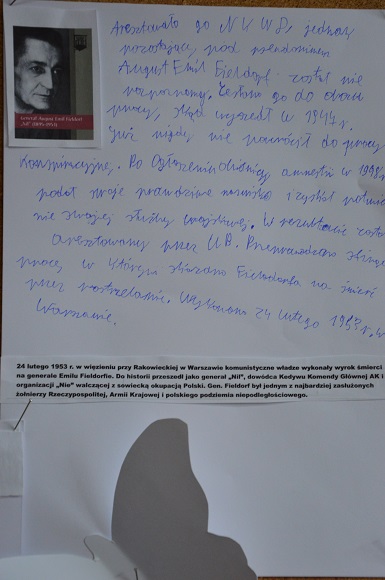 Generał August Emil Fieldorf
"Nil" (1895-1953)
Aresztowało go NKWD, jednak
pozostający pod pseudonimem
August Emil Fieldorf został nie
rozpoznany. Zesłano go do obozu
pracy, skąd wyszedł w 1947 r.
Już nigdy nie powrócił do pracy
konspiracyjnej. Po ogłoszeniu amnestii w 1948
podał swoje prawdziwe nazwisko i
nie swojej służby wojskowej. W rezultacie został
aresztowany przez UB. Przeprowadzono
proces w którym skazano Fieldorfa na śmierć
przez rozstrzelanie. Wykonano 24 lutego 1953 r. w
Warszawie.
24 lutego 1953 r. w więzieniu przy Rakowieckiej w Warszawie komunistyczne władze wykonały wyrok śmierci
na generale Emilu Fieldorfie. Do historii przeszedł jako generał „Nil", dowódca Kedywu Komendy Głównej AK i
organizacji „Nie" walczącej z sowiecką okupacją Polski. Gen. Fieldorf był jednym z najbardziej zasłużonych
żołnierzy Rzeczypospolitej, Armii Krajowej i polskiego podziemia niepodległościowego.